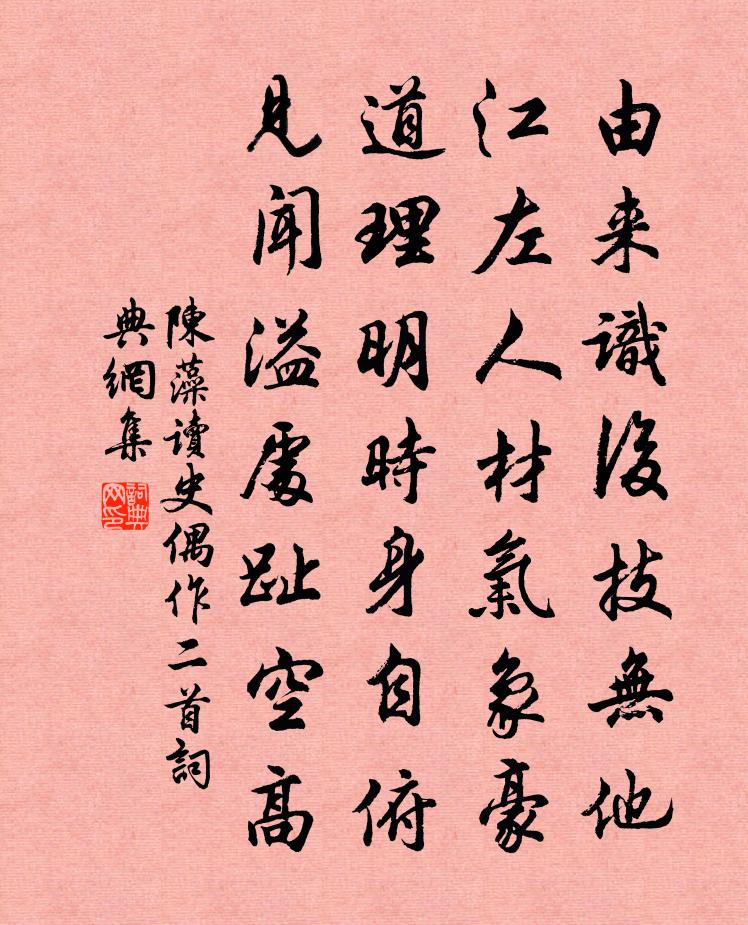 由来識後技無他
江左人材氣象豪
道理明時身自俯
見聞溢處趾空高
陳藻讀史偶作二首詞
典網集
詞典
网印